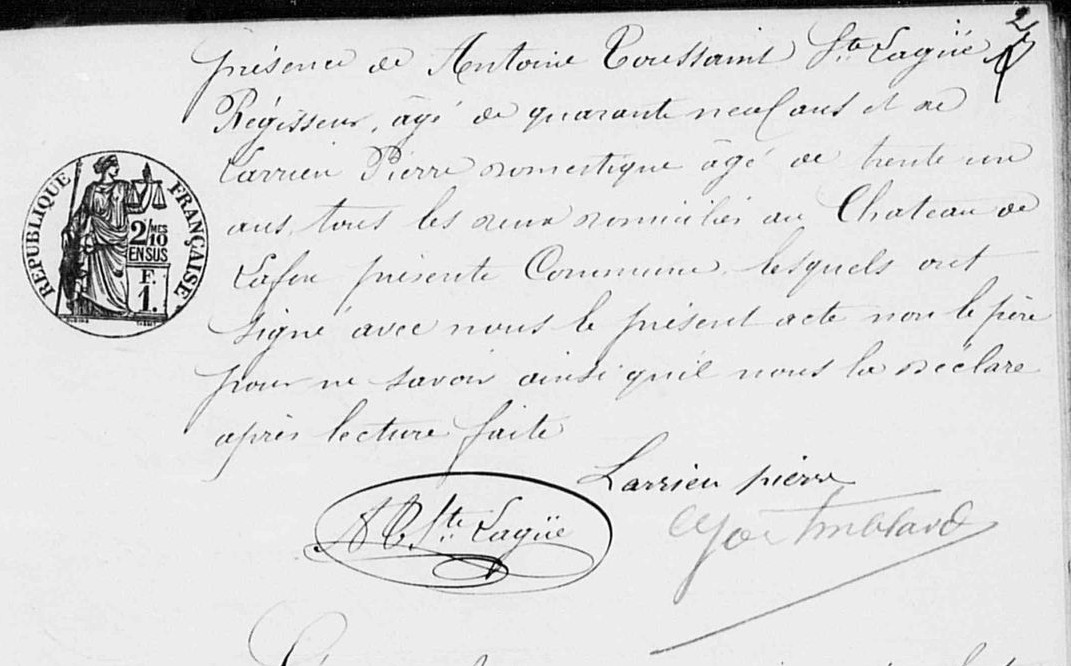 2
présence de Antoine Toussaint Ste Lagüe
Régisseur, âgé de quarante neuf ans et de
Larrieu Pierre domestique âgé de trente un
ans, tous les deux domiciliés au Chateau de
Lafon présente Commune, lesquels ont
signé avec nous le présent acte non le père
pour ne savoir ainsi qu'il nous la déclaré
après lecture faite
RÉPUBLIQUE FRANÇAISE
2/10 MES
EN SUS
F.
1.
Larrieu pierre
A T Ste Lagüe